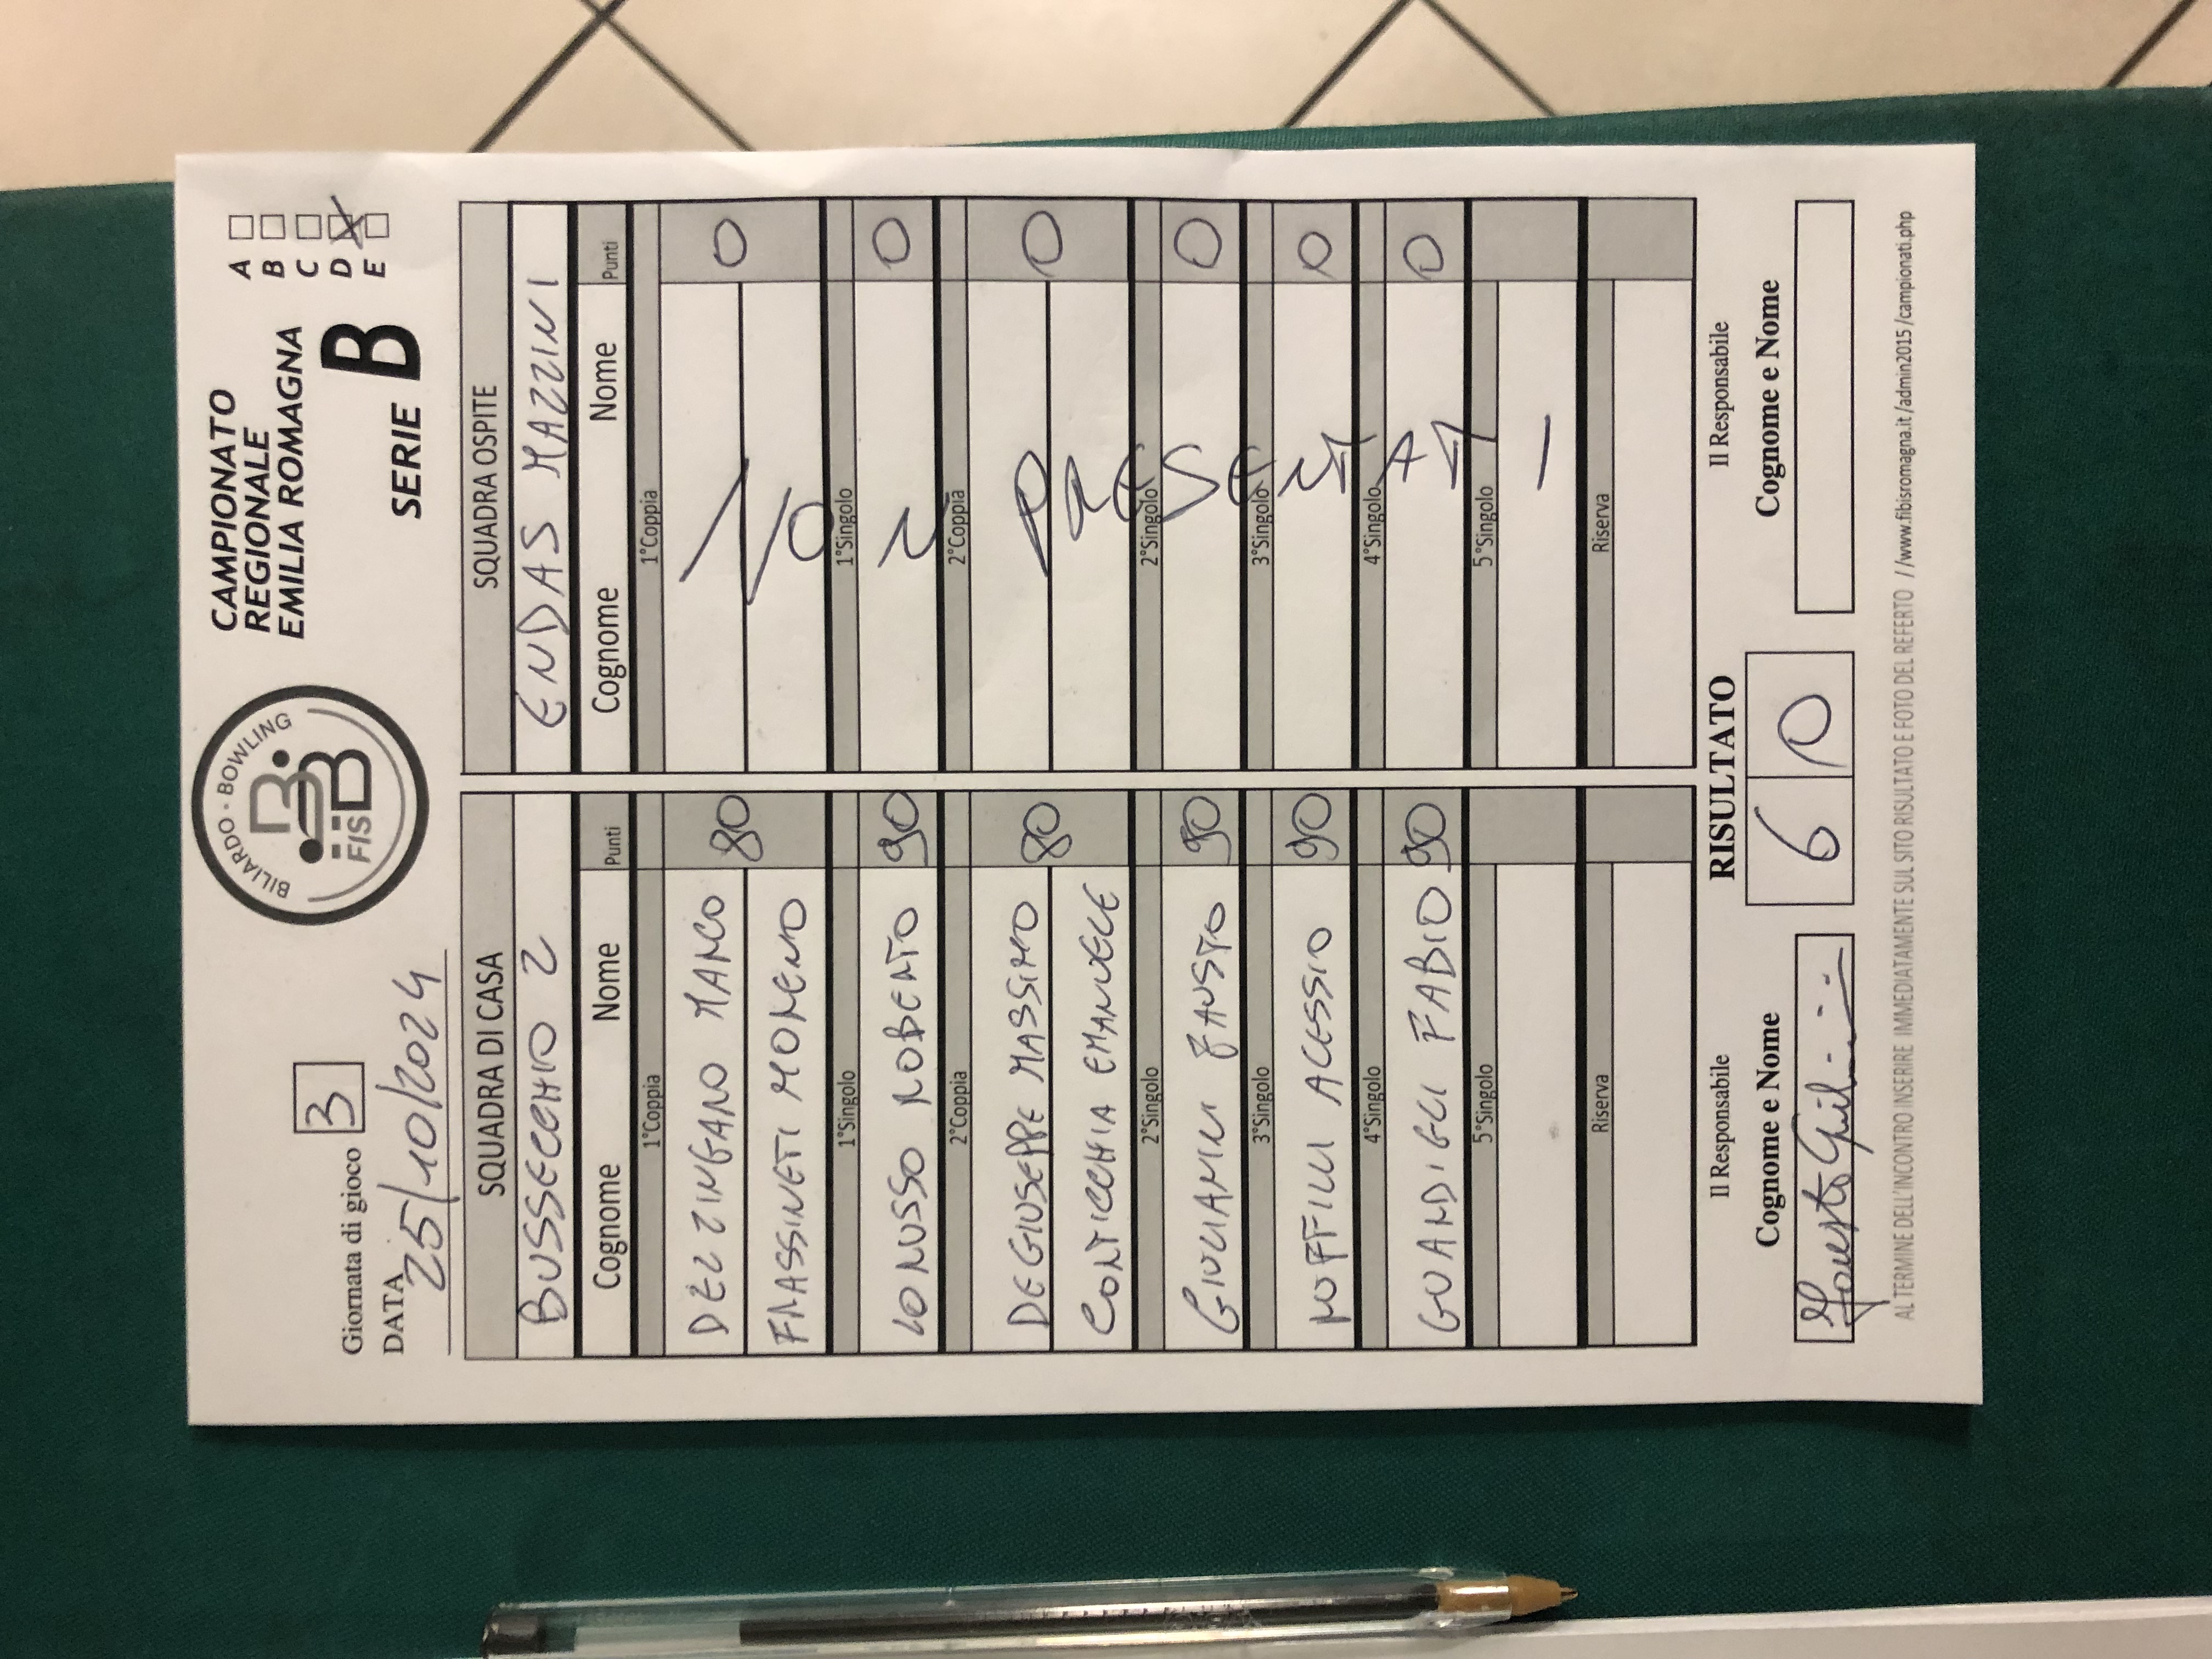 Giornata di gioco 3
DATA 25/10/2024
BILIARDO · BOWLING
FISBB
CAMPIONATO
REGIONALE
EMILIA ROMAGNA
SERIE B
A
B
C
D
E
SQUADRA DI CASA
BUSSECCHIO 2
Cognome Nome Punti
1°Coppia
DELZINGARO MARCO 80
FRASSINETI MORENO
1°Singolo
LORUSSO ROBERTO 90
2°Coppia
DEGIUSEPPE MASSIMO 80
CONTICCHIA EMANUELE
2°Singolo
GIULIANINI FAUSTO 90
3°Singolo
RUFFILLI ALESSIO 90
4°Singolo
GUARDIGLI FABIO 90
5°Singolo
Riserva
SQUADRA OSPITE
ENDAS MAZZINI
Cognome Nome Punti
1°Coppia
0
1°Singolo
0
2°Coppia
0
2°Singolo
0
3°Singolo
0
4°Singolo
0
5°Singolo
Riserva
NON PRESENTATI
Il Responsabile
Cognome e Nome
RISULTATO
6 0
Il Responsabile
Cognome e Nome
AL TERMINE DELL'INCONTRO INSERIRE IMMEDIATAMENTE SUL SITO RISULTATO E FOTO DEL REFERTO //www.fibisromagna.it/admin2015/campionati.php